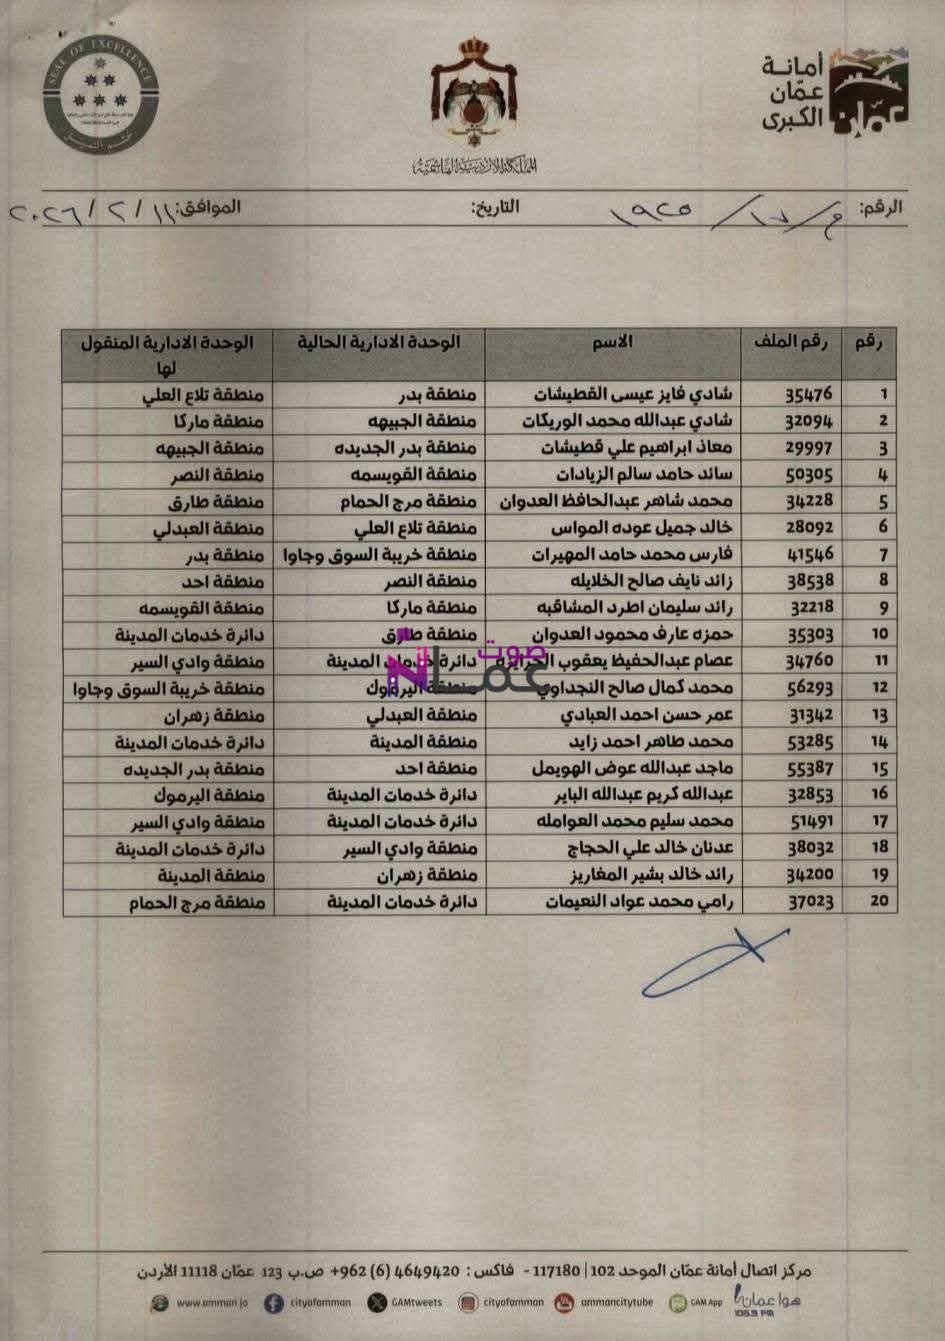 SEAL OF EXCELLENCE
ختم التميز
المملكة الأردنية الهاشمية
أمانة
عمّان
الكبرى
عمّان
الرقم: م/١٧/١٩٢٥ التاريخ: الموافق: ١١/٢/٢٠٢٦
رقم رقم الملف الاسم الوحدة الادارية الحالية الوحدة الادارية المنقول لها
1 35476 شادي فايز عيسى القطيشات منطقة بدر منطقة تلاع العلي
2 32094 شادي عبدالله محمد الوريكات منطقة الجبيهه منطقة ماركا
3 29997 معاذ ابراهيم علي قطيشات منطقة بدر الجديده منطقة الجبيهه
4 50305 سائد حامد سالم الزيادات منطقة القويسمه منطقة النصر
5 34228 محمد شاهر عبدالحافظ العدوان منطقة مرج الحمام منطقة طارق
6 28092 خالد جميل عوده المواس منطقة تلاع العلي منطقة العبدلي
7 41546 فارس محمد حامد المهيرات منطقة خريبة السوق وجاوا منطقة بدر
8 38538 زائد نايف صالح الخلايله منطقة النصر منطقة احد
9 32218 رائد سليمان اطرد المشاقبه منطقة ماركا منطقة القويسمه
10 35303 حمزه عارف محمود العدوان منطقة طارق دائرة خدمات المدينة
11 34760 عصام عبدالحفيظ يعقوب الحرايزه دائرة خدمات المدينة منطقة وادي السير
12 56293 محمد كمال صالح النجداوي منطقة اليرموك منطقة خريبة السوق وجاوا
13 31342 عمر حسن احمد العبادي منطقة العبدلي منطقة زهران
14 53285 محمد طاهر احمد زايد منطقة المدينة دائرة خدمات المدينة
15 55387 ماجد عبدالله عوض الهويمل منطقة احد منطقة بدر الجديده
16 32853 عبدالله كريم عبدالله الباير دائرة خدمات المدينة منطقة اليرموك
17 51491 محمد سليم محمد العوامله دائرة خدمات المدينة منطقة وادي السير
18 38032 عدنان خالد علي الحجاج منطقة وادي السير دائرة خدمات المدينة
19 34200 رائد خالد بشير المغاريز منطقة زهران منطقة المدينة
20 37023 رامي محمد عواد النعيمات دائرة خدمات المدينة منطقة مرج الحمام
صوت
عمان
مركز اتصال أمانة عمّان الموحد 102 | 117180 - فاكس: 4649420 (6) 962+ ص.ب 123 عمّان 11118 الأردن
www.amman.jo cityofamman GAMtweets cityofamman ammancitytube GAM App هوا عمان
105.9 FM